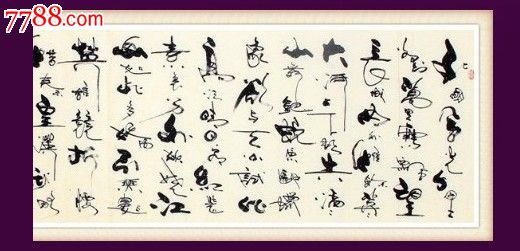 7788.com
北国风光千里
冰封万里雪飘望
长城内外惟余莽
大河上下顿失滔
山舞银蛇原驰蜡
象欲与天公试比
高须晴日看红装
素裹分外妖娆江
山如此多娇引无
数英雄竞折腰
惜秦皇汉武略